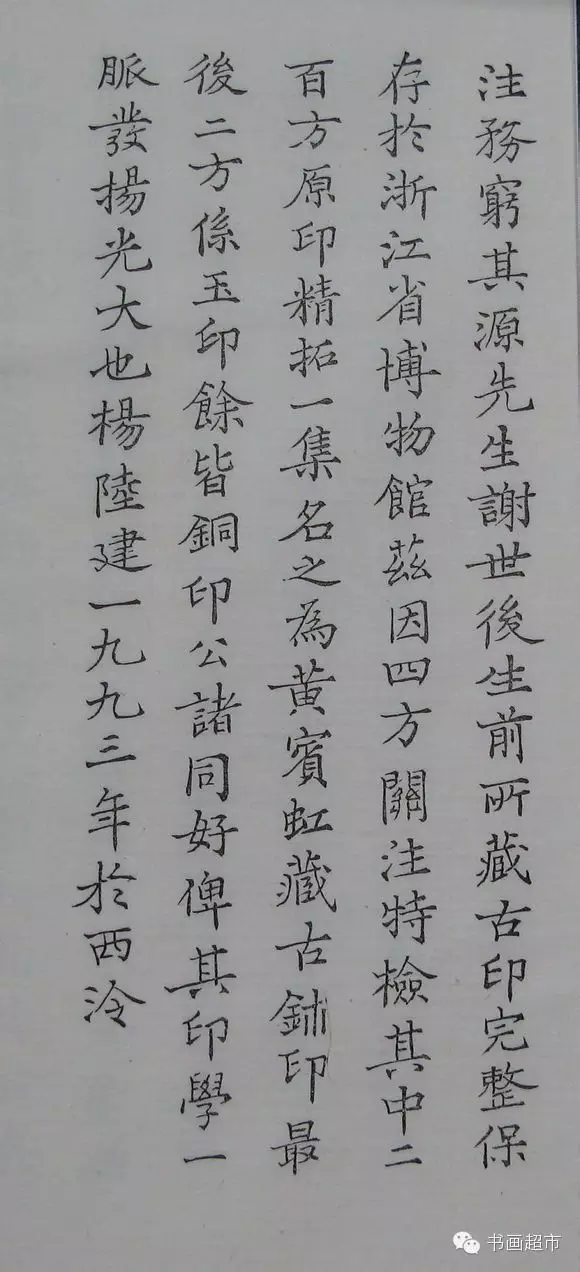 注務窮其源先生謝世後生前所藏古印完整保
存於浙江省博物館茲因四方關注特檢其中二
百方原印精拓一集名之為黃賓虹藏古鉥印最
後二方係玉印餘皆銅印公諸同好俾其印學一
脈發揚光大也楊陸建一九九三年於西泠
书画超市